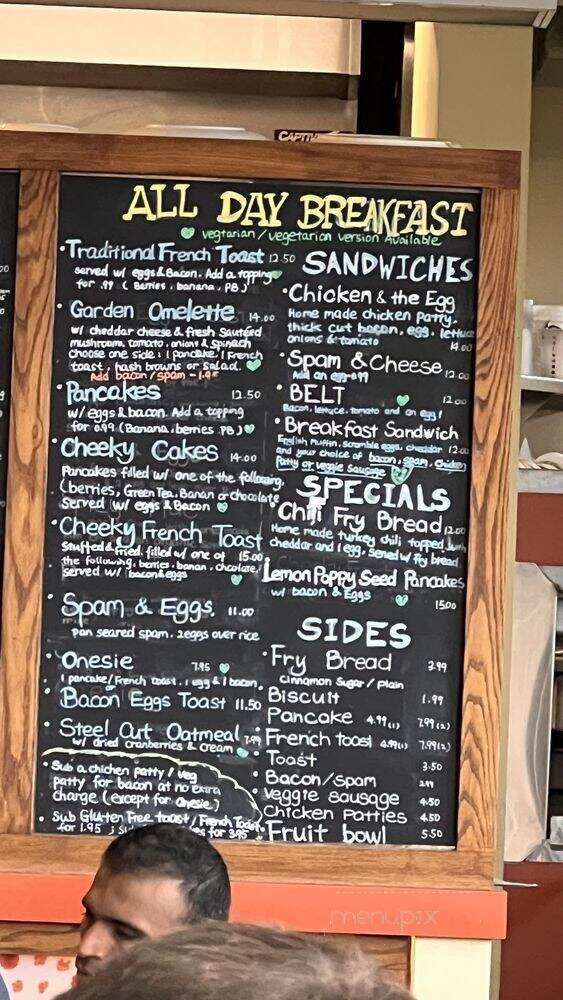 CAPTIV
ALL DAY BREAKFAST
vegtarian/vegetarian version Available
•Traditional French Toast 12.50
served w/ eggs & Bacon. Add a topping
for .99 ( Berries, banana, PB )
•Garden Omelette 14.00
w/ cheddar cheese & fresh Sautéed
mushroom, tomato, onions & Spinach
choose one side: 1 pancake, 1 French
toast, hash browns or salad.
Add bacon/spam - 1.95
•Pancakes 12.50
w/ eggs & bacon. Add a topping
for 0.99 (Banana, berries PB)
•Cheeky Cakes 14.00
Pancakes filled w/ one of the following,
(berries, Green Tea, Banan or chocolate
Served (w/ eggs & Bacon
•Cheeky French Toast
Stuffed & fried, filled w/ one of 15.00
the following: berries, banana, chcolate,
served w/ bacon & eggs
•Spam & Eggs. 11.00
pan seared spam. 2eggs over rice
•Onesie 7.95
1 pancake/French toast, 1 egg & 1 bacon
•Bacon Eggs Toast 11.50
•Steel Cut Oatmeal 7.99
w/ dried cranberries & cream
• Sub a chichen patty / veg
patty for bacon at no extra
charge (except for onesie)
• Sub Gluten Free toast/French Toast
for 1.95 ; Su es for 3.95
SANDWICHES
•Chicken & the Egg
Home made chicken patty.
thick cut bacon, egg, lettuce
onions & tomato 14.00
•Spam & Cheese 12.00
Add an egg .99
•BELT 12.00
Bacon, lettuce, tomato and an egg!
•Breakfast Sandwich
English Muffin, Scramble eggs, cheddar 12.00
and your choice of bacon, spam, chicken
Patty or veggie Sausage
SPECIALS
•Chili Fry Bread 12.00
Home made turkey chili topped with
cheddar and 1 egg. Served w/ fry bread
Lemon Poppy Seed Pancakes
w/ bacon & Eggs
15.00
SIDES
•Fry Bread 3.99
Cinnamon Sugar / plain
•Biscuit 1.99
•Pancake 4.99(1) 7.99(2)
•French toast 4.99(1) 7.99(2)
•Toast 3.50
•Bacon/spam 2.99
•Veggie Sausage 4.50
•Chicken Patties 4.50
•Fruit bowl 5.50
menupix